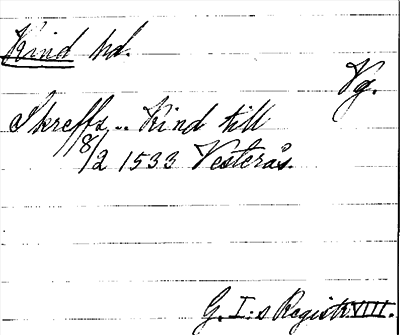 Kind hd.
Vg.
Skreffs .. Kind till
8/2 1533 Vesterås.
G. I:s Registr. XVIII.